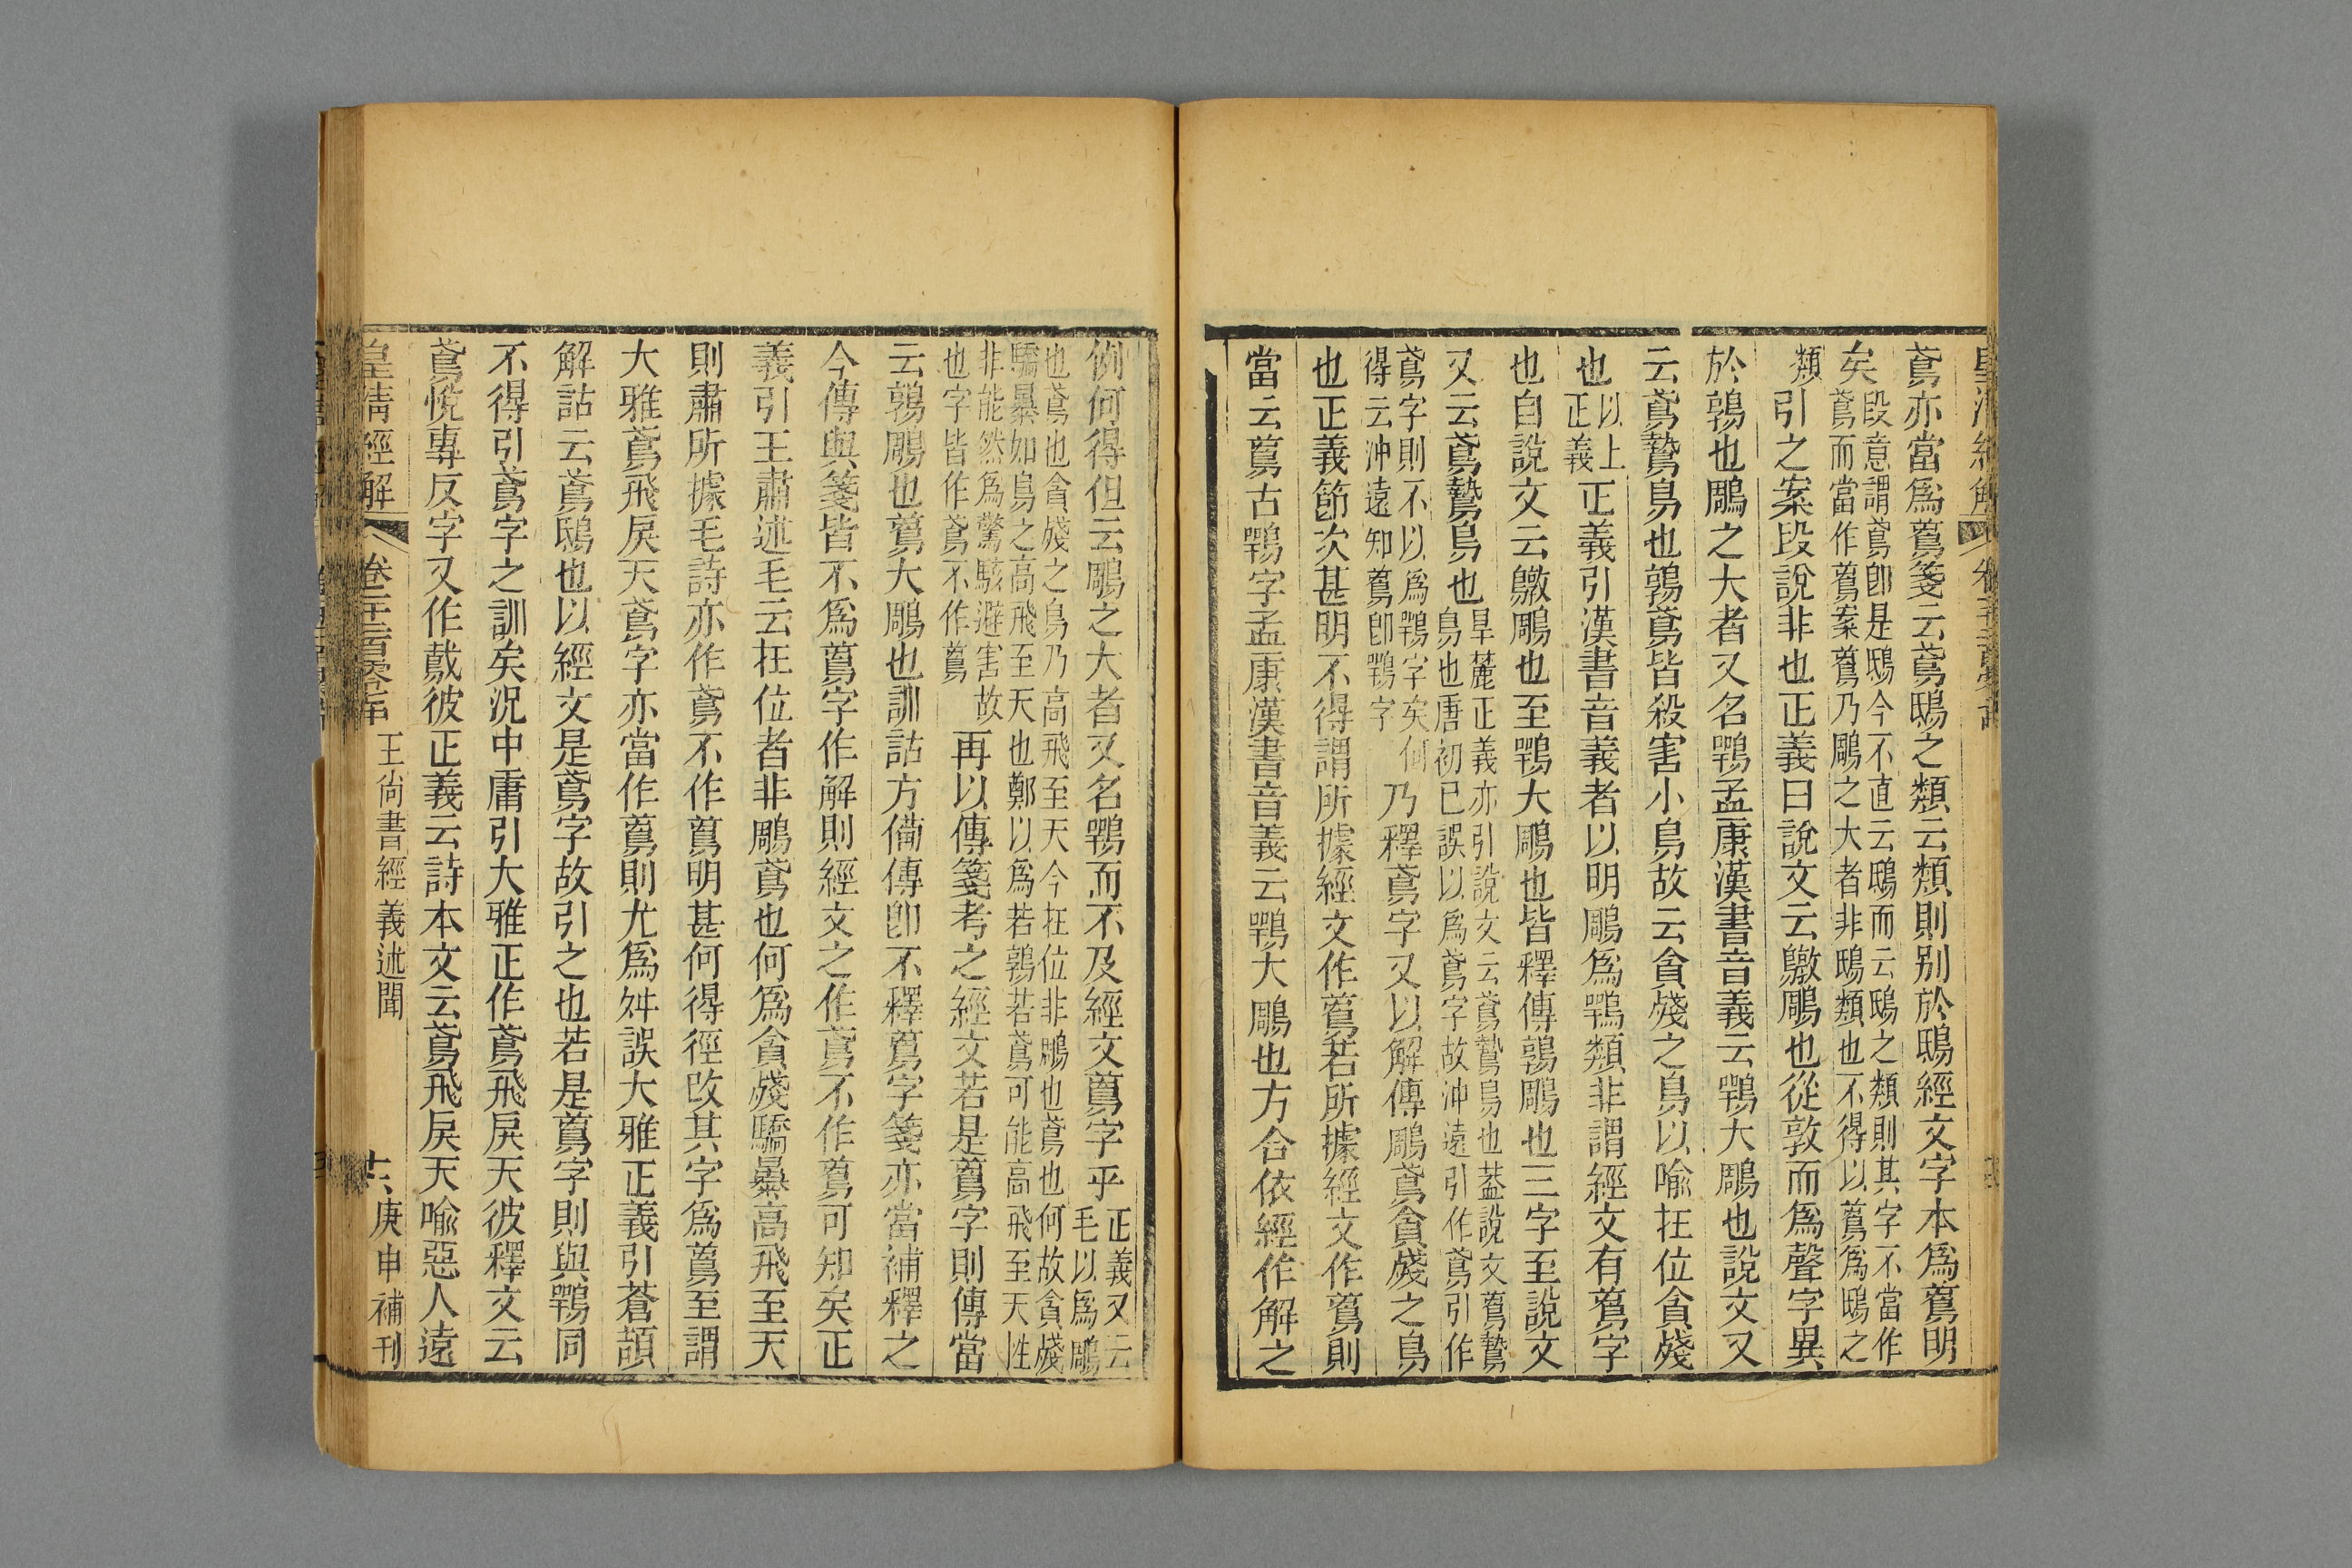 鳶亦當爲䳡箋云鳶鴟之類云類則别於鴟經文字本爲䳡明
矣段意謂鳶卽是鴟今不直云鴟而云鴟之類則其字不當作
鳶而當作䳡案䳡乃鵰之大者非鴟類也不得以䳡爲鴟之
類引之案段說非也正義曰說文云鷻鵰也從敦而爲聲字異
於鶉也鵰之大者又名鶚孟康漢書音義云鶚大鵰也說文又
云鳶鷙鳥也鶉鳶皆殺害小鳥故云貪殘之鳥以喻在位貪殘
也以上
正義正義引漢書音義者以明鵰爲鶚類非謂經文有䳡字
也自說文云鷻鵰也至鶚大鵰也皆釋傳鶉鵰也三字至說文
又云鳶鷙鳥也旱麓正義亦引說文云鳶鷙鳥也葢說文䳡鷙
鳥也唐初已誤以爲鳶字故沖遠引作鳶引作
鳶字則不以爲鶚字矣何
得云沖遠知䳡卽鶚字乃釋鳶字又以解傳鵰鳶貪殘之鳥
也正義節次甚明不得謂所據經文作䳡若所據經文作䳡則
當云䳡古鶚字孟康漢書音義云鶚大鵰也方合依經作解之
例何得但云鵰之大者又名鶚而不及經文䳡字乎正義又云
毛以爲鵰
也鳶也貪殘之鳥乃高飛至天今在位非鵰也鳶也何故貪殘
驕暴如鳥之高飛至天也鄭以爲若鶉若鳶可能高飛至天性
非能然爲驚駭避害故
也字皆作鳶不作䳡再以傳箋考之經文若是䳡字則傳當
云鶉鵰也䳡大鵰也訓詁方備傳卽不釋䳡字箋亦當補釋之
今傳與箋皆不爲䳡字作解則經文之作鳶不作䳡可知矣正
義引王肅述毛云在位者非鵰鳶也何爲貪殘驕暴高飛至天
則肅所據毛詩亦作鳶不作䳡明甚何得徑改其字爲䳡至謂
大雅鳶飛戾天鳶字亦當作䳡則尤爲舛誤大雅正義引蒼頡
解詁云鳶鴟也以經文是鳶字故引之也若是䳡字則與鶚同
不得引鳶字之訓矣況中庸引大雅正作鳶飛戾天彼釋文云
鳶悅專反字又作䳒彼正義云詩本文云鳶飛戾天喻惡人遠
皇清經解 卷一千二百零七 王尚書經義述聞 十六 庚申補刊